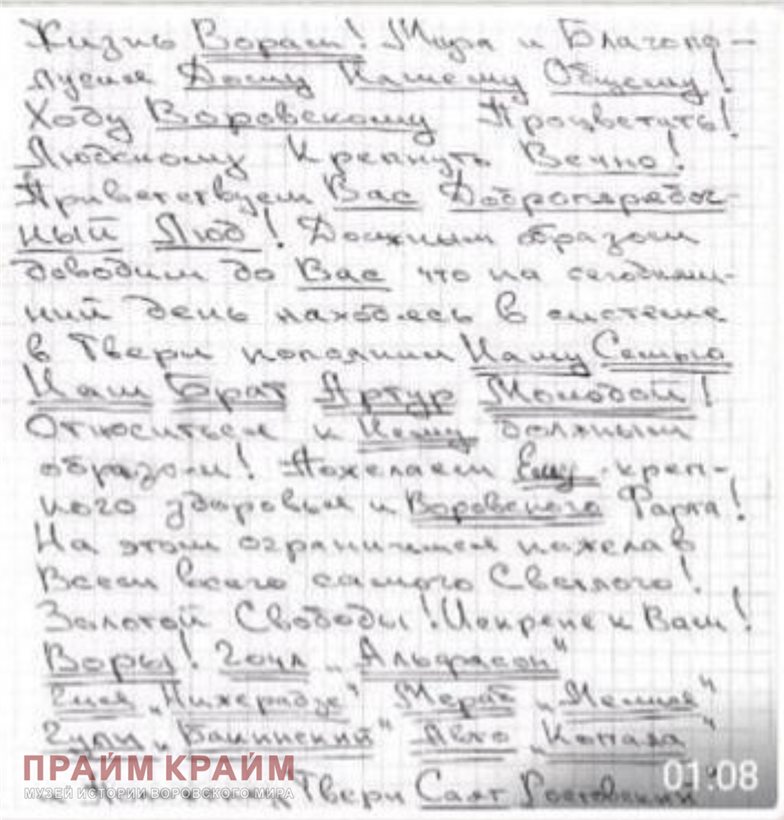 Жизнь Ворам! Мира и Благопо-
лучия Дому Нашему Общему!
Ходу Воровскому Процветать!
Людскому Крепнуть Вечно!
Приветствуем Вас Добропорядоч-
ный Люд! Должным образом
доводим до Вас что на сегодняш-
ний день находясь в системе
в Твери пополнил Нашу Семью
Наш Брат Артур Молодой!
Относиться к Нему должным
образом! Пожелаем Ему креп-
кого здоровья и Воровского Фарта!
На этом ограничимся пожелав
Всем всего самого Светлого!
Золотой Свободы! Искрене к Вам!
Воры! Гочи „Альфасон“
Гия „Пижерадзе“ Мераб
Гули „Бакинский“ Авто „Копала“
ПРАЙМ КРАЙМ
01:08
МУЗЕЙ ИСТОРИИ ВОРОВСКОГО МИРА
Твери Саят Ростовский